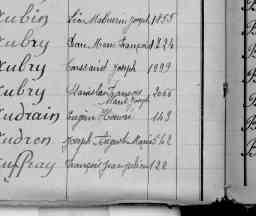 Aubin Léon Mathurin Joseph 1855
Aubry Jean Marie François 1224
Aubry Toussaint Joseph 1099
Aubry Stanislas François Marie Joseph 2066
Audrain Eugène 149
Audren Joseph Auguste Marie 562
Auffray François Jean Julien 122